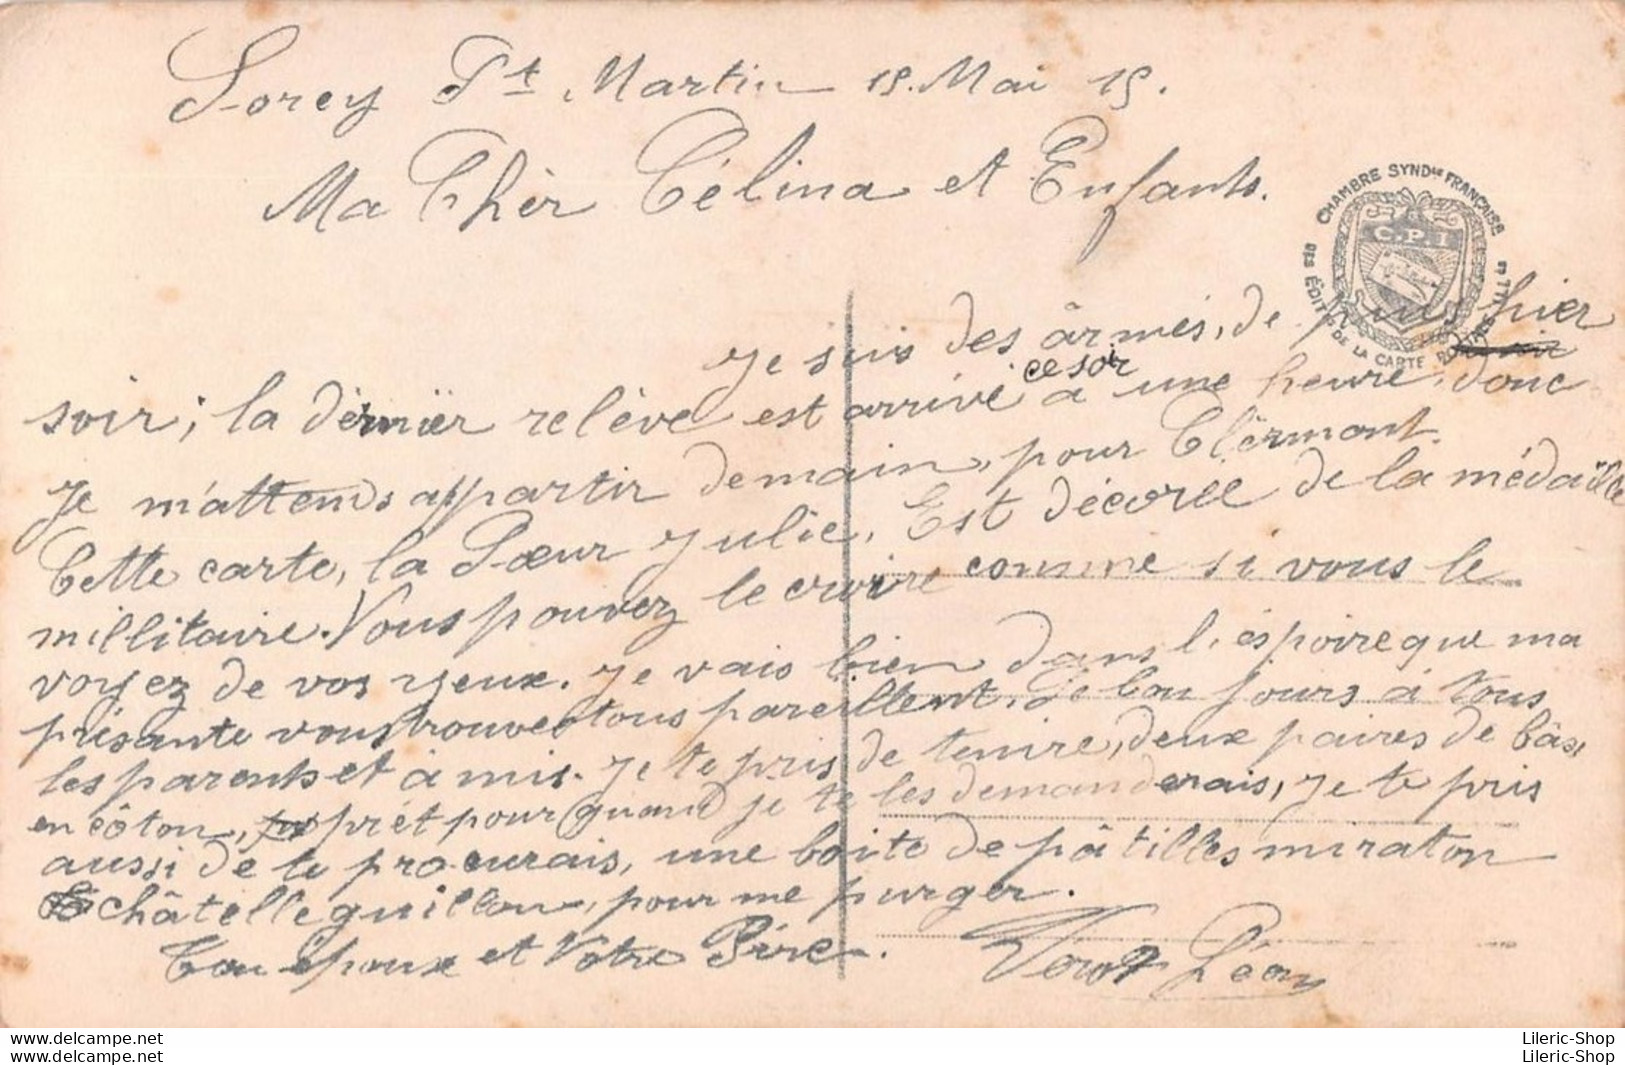 Sorcy St Martin 15. Mai 15.
Ma Chèr Célina et Enfants.
CHAMBRE SYNDle FRANÇAISE
DES ÉDITrs DE LA CARTE POSTALE
C.P.I
Je suis des ârmés, de puis hier
soir; la dèrnièr relève est arrivé ce soir à une heure, donc
Je m'attends appartir demain, pour Clêrmont.
Cette carte, la Sœur Julie, Est décorée de la médaille
millitaire. Vous pouvez le croire comme si vous le
voyez de vos yeux. Je vais bien dans l'éspoire que ma
présante vous trouve tous pareillent. Le bon jours à tous
les parents et à mis. Je te pris de tenire, deux paires de bâs,
en côton, prêt pour quand je te les demanderais, Je te pris
aussi de te procurais, une boite de pâtilles miraton
châtelleguillon, pour me purger.
Ton époux et Votre Père. Léon
Lileric-Shop
Lileric-Shop
Lileric-Shop
Lileric-Shop